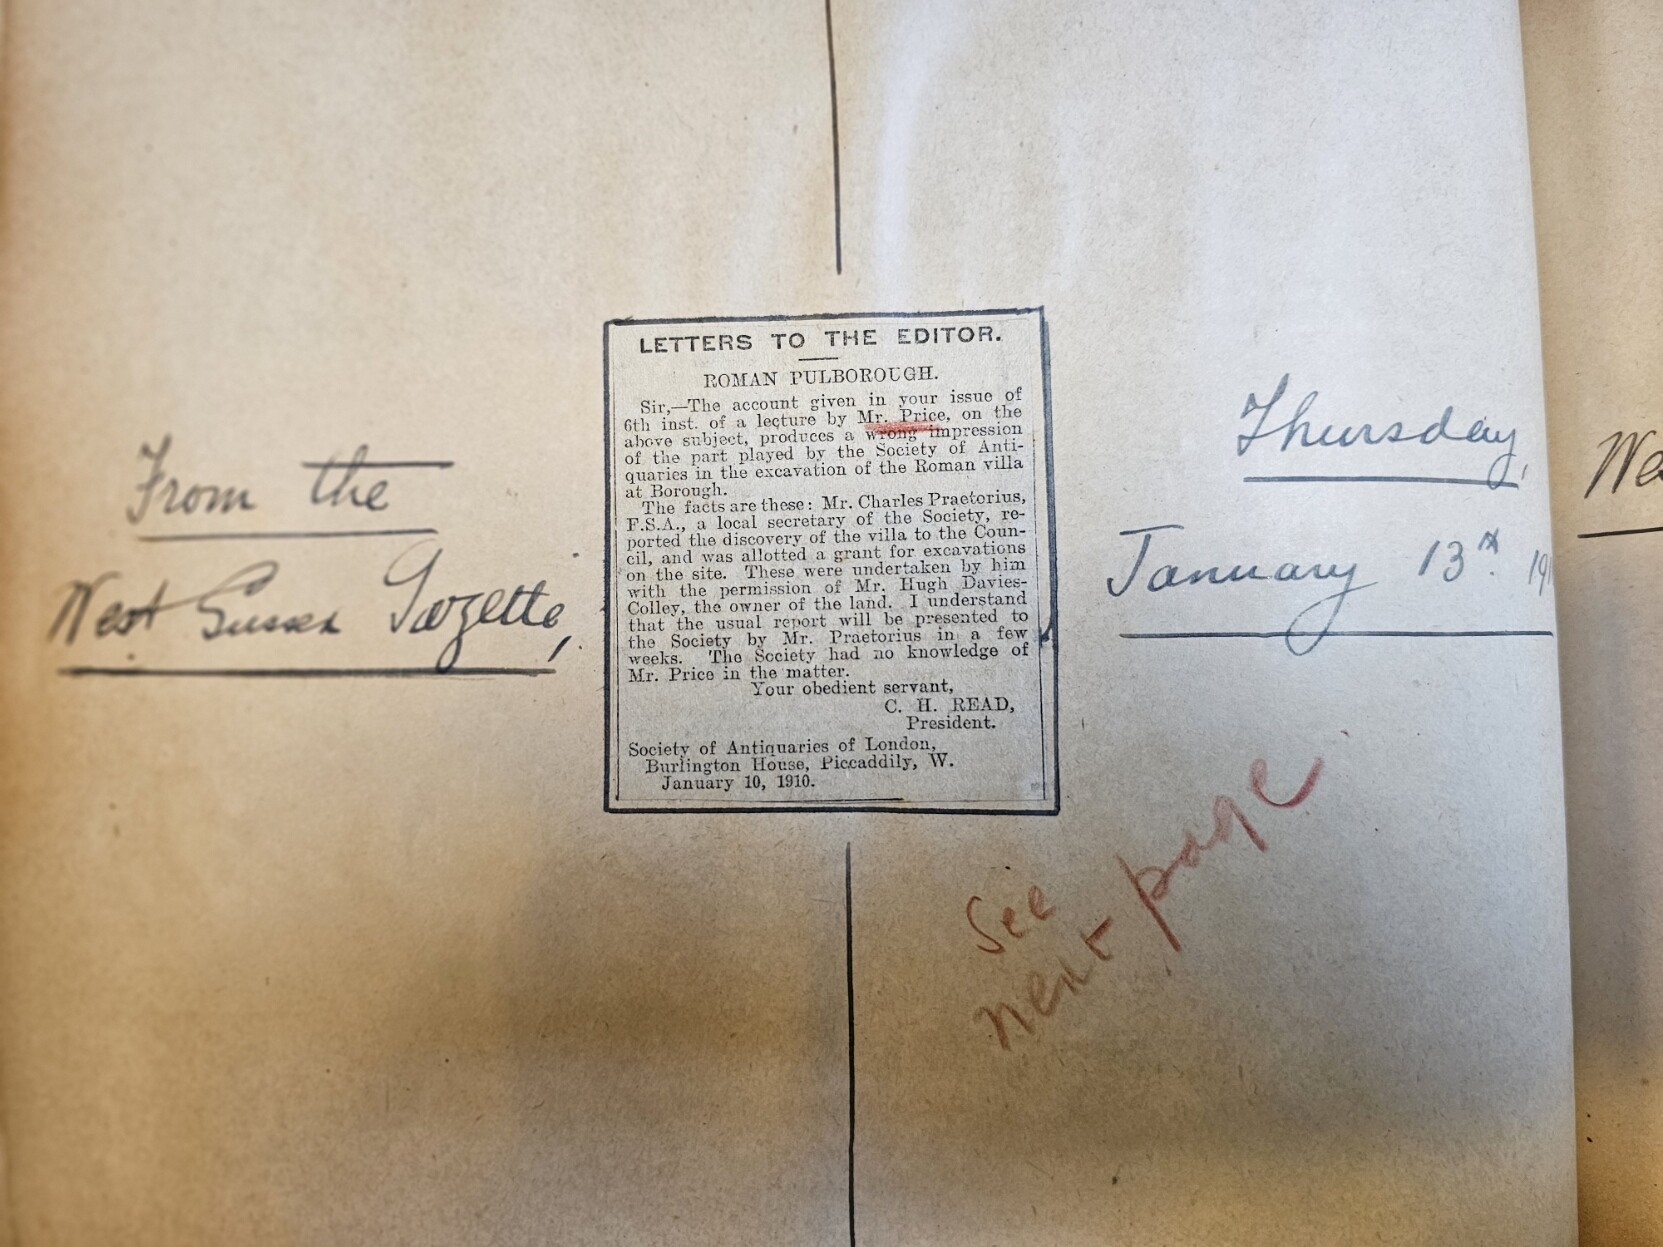 From the
West Sussex Gazette,
LETTERS TO THE EDITOR.
ROMAN PULBOROUGH.
Sir,—The account given in your issue of
6th inst. of a lecture by Mr. Price, on the
above subject, produces a wrong impression
of the part played by the Society of Anti-
quaries in the excavation of the Roman villa
at Borough.
The facts are these: Mr. Charles Praetorius,
F.S.A., a local secretary of the Society, re-
ported the discovery of the villa to the Coun-
cil, and was allotted a grant for excavations
on the site. These were undertaken by him
with the permission of Mr. Hugh Davies-
Colley, the owner of the land. I understand
that the usual report will be presented to
the Society by Mr. Praetorius in a few
weeks. The Society had no knowledge of
Mr. Price in the matter.
Your obedient servant,
C. H. READ,
President.
Society of Antiquaries of London,
Burlington House, Piccadilly, W.
January 10, 1910.
Thursday,
January 13th.
See
next page